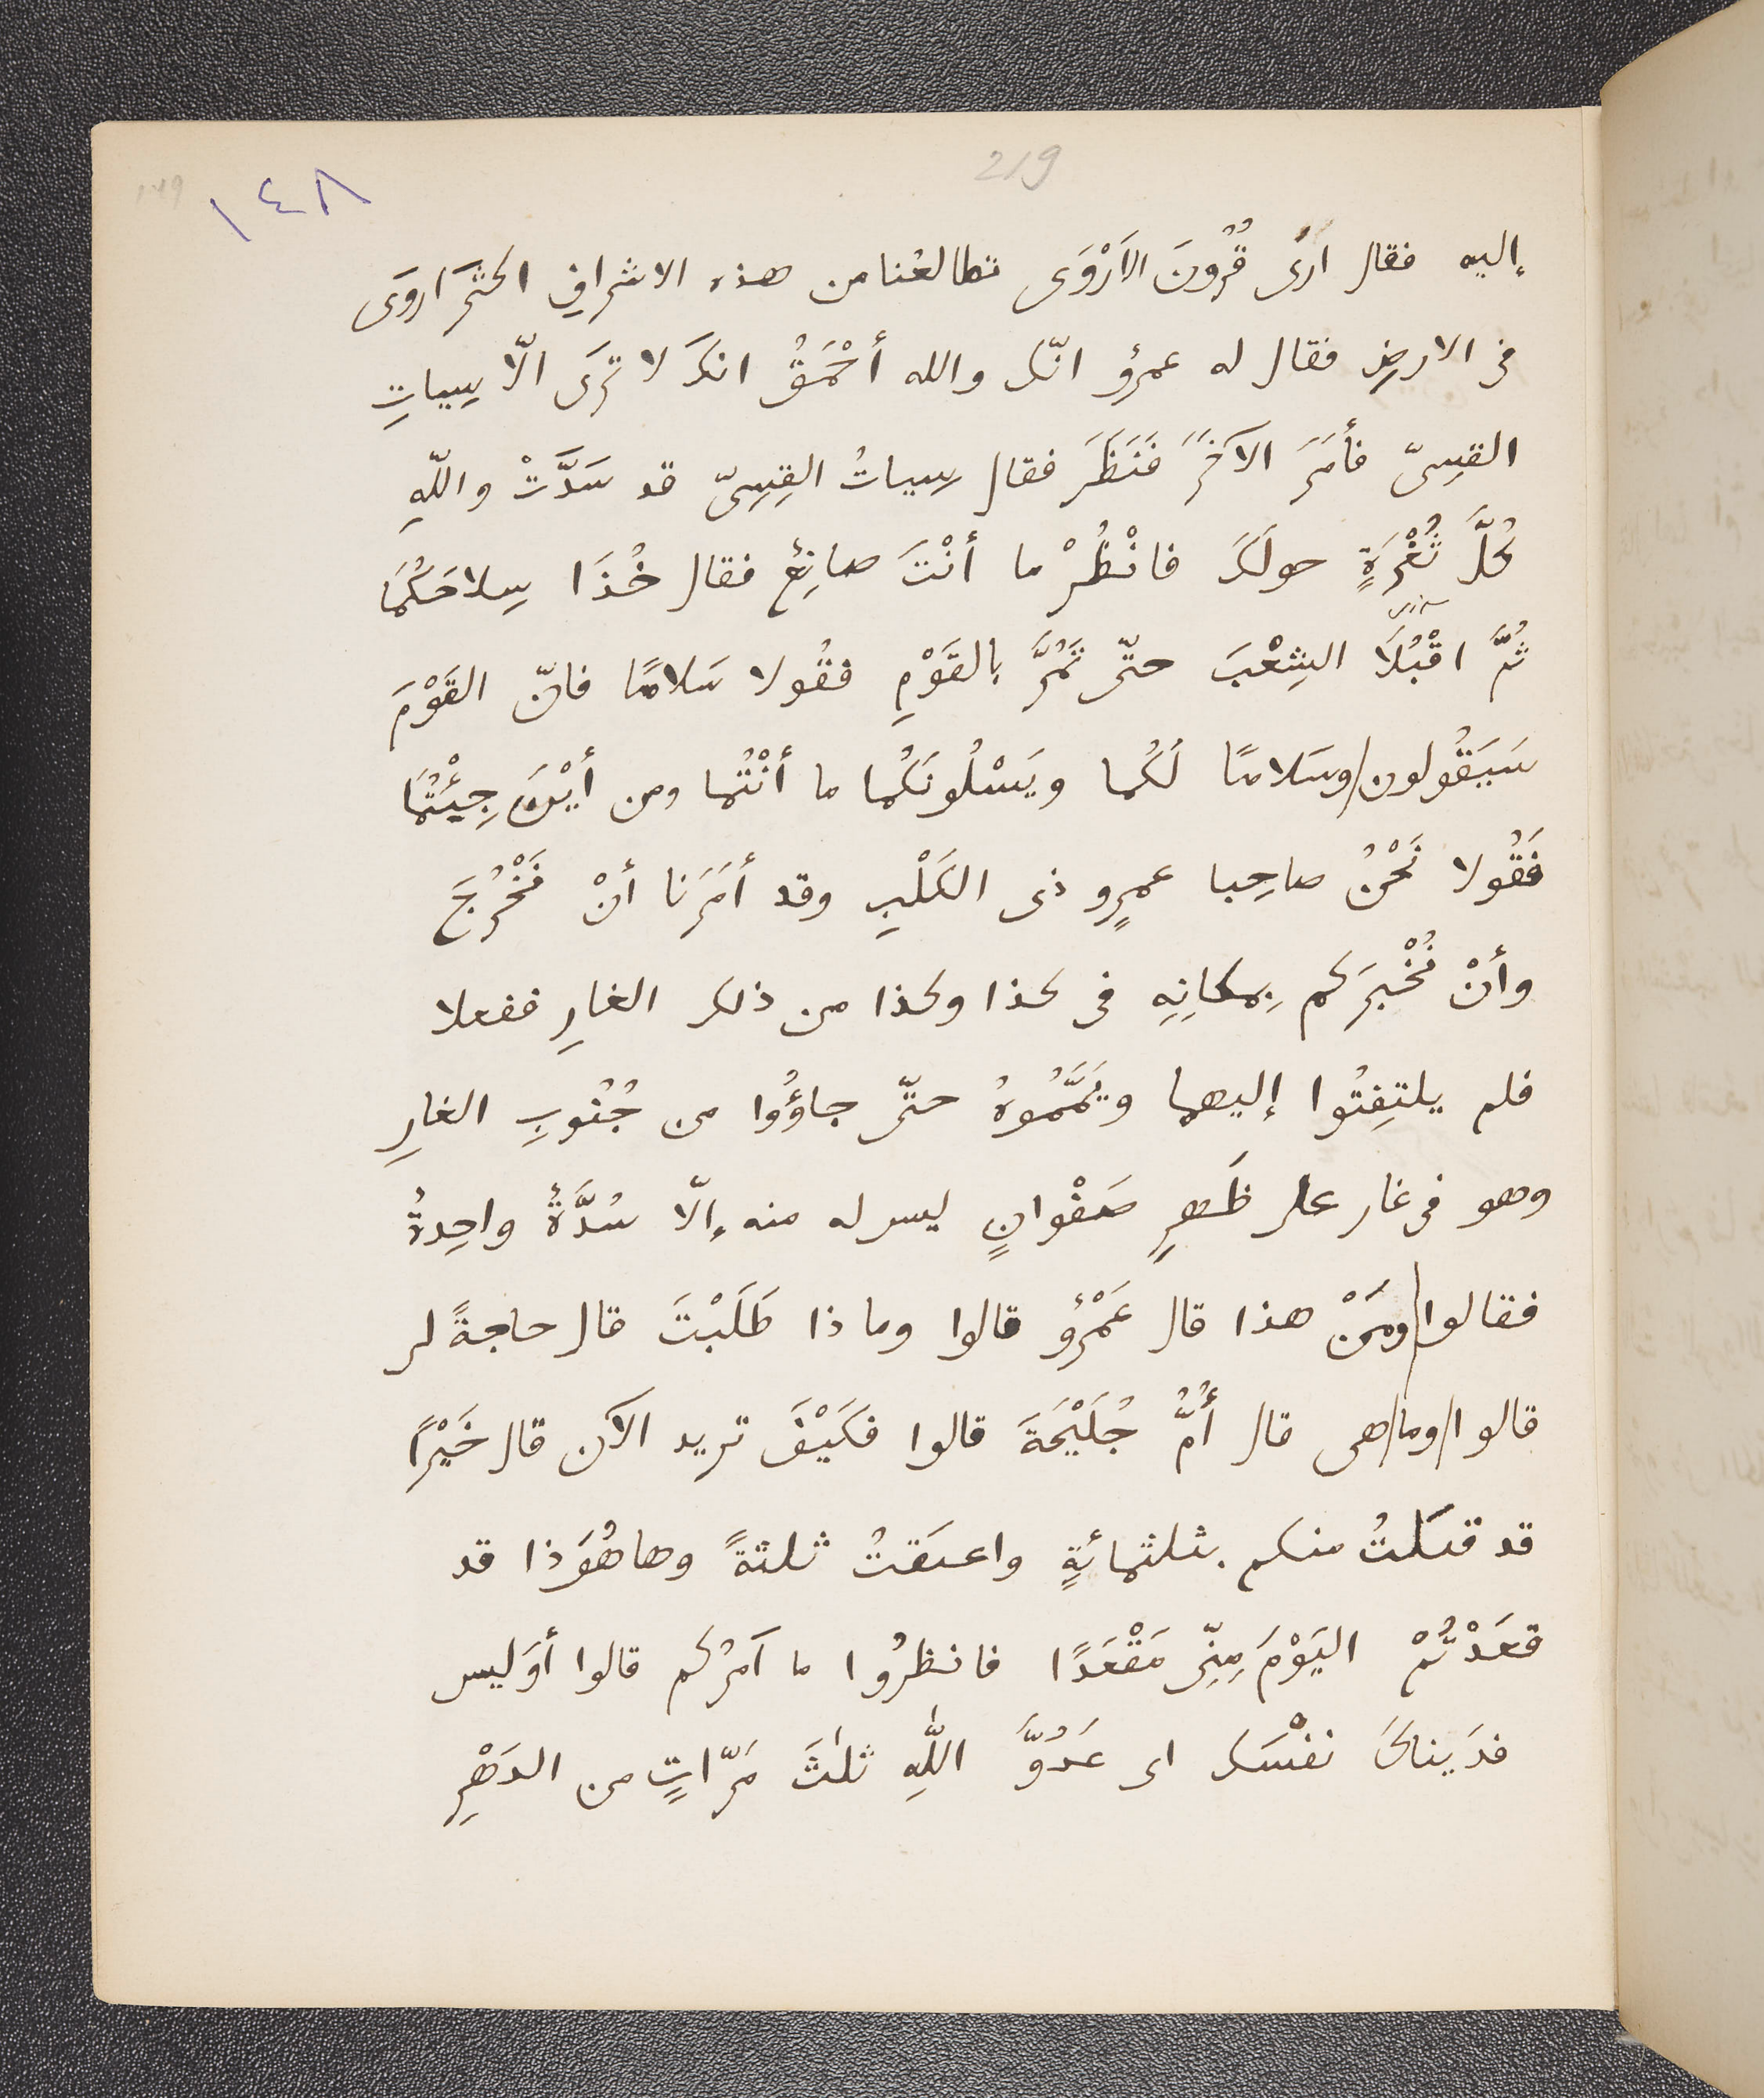 219
١٤٨
149
إليه فقال ارى قُرُونَ الأَرْوَى تطالعُنا من هذه الاشرافِ اكثرَ اروَى
فى الارضِ فقال له عمرٌو انّك والله أحْمَقُ انكَ لا ترَى الّا سِيياتِ
القِسِىّ فأمَرَ الآخَرَ فَنَظَرَ فقال سِيياتُ القِسِىّ قد سَدَّتْ واللّهِ
كُلَّ ثُغْرَةٍ حولَكَ فانْظُرْ ما أنْتَ صانِعٌ فقال خُذَا سِلاحَكُمَا
ثُمَّ اقْبُلَا الشِعْبَ حتّى تَمُرَّ بالقَوْمِ فقُولا سَلامًا فانّ القَوْمَ
سَيَقُولون وسَلامًا لَكُما ويَسْلُونَكُما ما أنْتُما ومن أيْنَ جِئْتُمَا
فَقُولا نَحْنُ صاحِبا عمرٍو ذى الكَلْبِ وقد أمَرَنا أنْ نَخْرُجَ
وأنْ نُخْبِرَكم بِمكانِهِ فى كذا وكذا من ذلك الغارِ ففعلا
فلم يلتفِتُوا إليهما ويَمَّمُوهُ حتّى جاؤُوا من جُنُوبِ الغارِ
وهو فى غار على ظَهرِ صَفْوانٍ ليس له منه إلّا سُدَّةٌ واحِدةٌ
فقالوا ومَنْ هذا قال عَمْرٌو قالوا وما ذا طَلَبْتَ قال حاجةً لى
قالوا وما هى قال أُمُّ جُلَيْحَةَ قالوا فكَيْفَ تريد الآن قال خَيْرًا
قد قتلتُ منكم بثلثمائةٍ واعتقتُ ثلثةً وها هُوَ ذا قد
قعَدْتُمْ اليَوْمَ مِنِّى مَقْعَدًا فانظرُوا ما آمرُكم قالوا أوَليس
فدَيناكَ نفْسَك اى عَدُوَّ اللّٰهِ ثلٰثَ مَرّاتٍ من الدَهْرِ